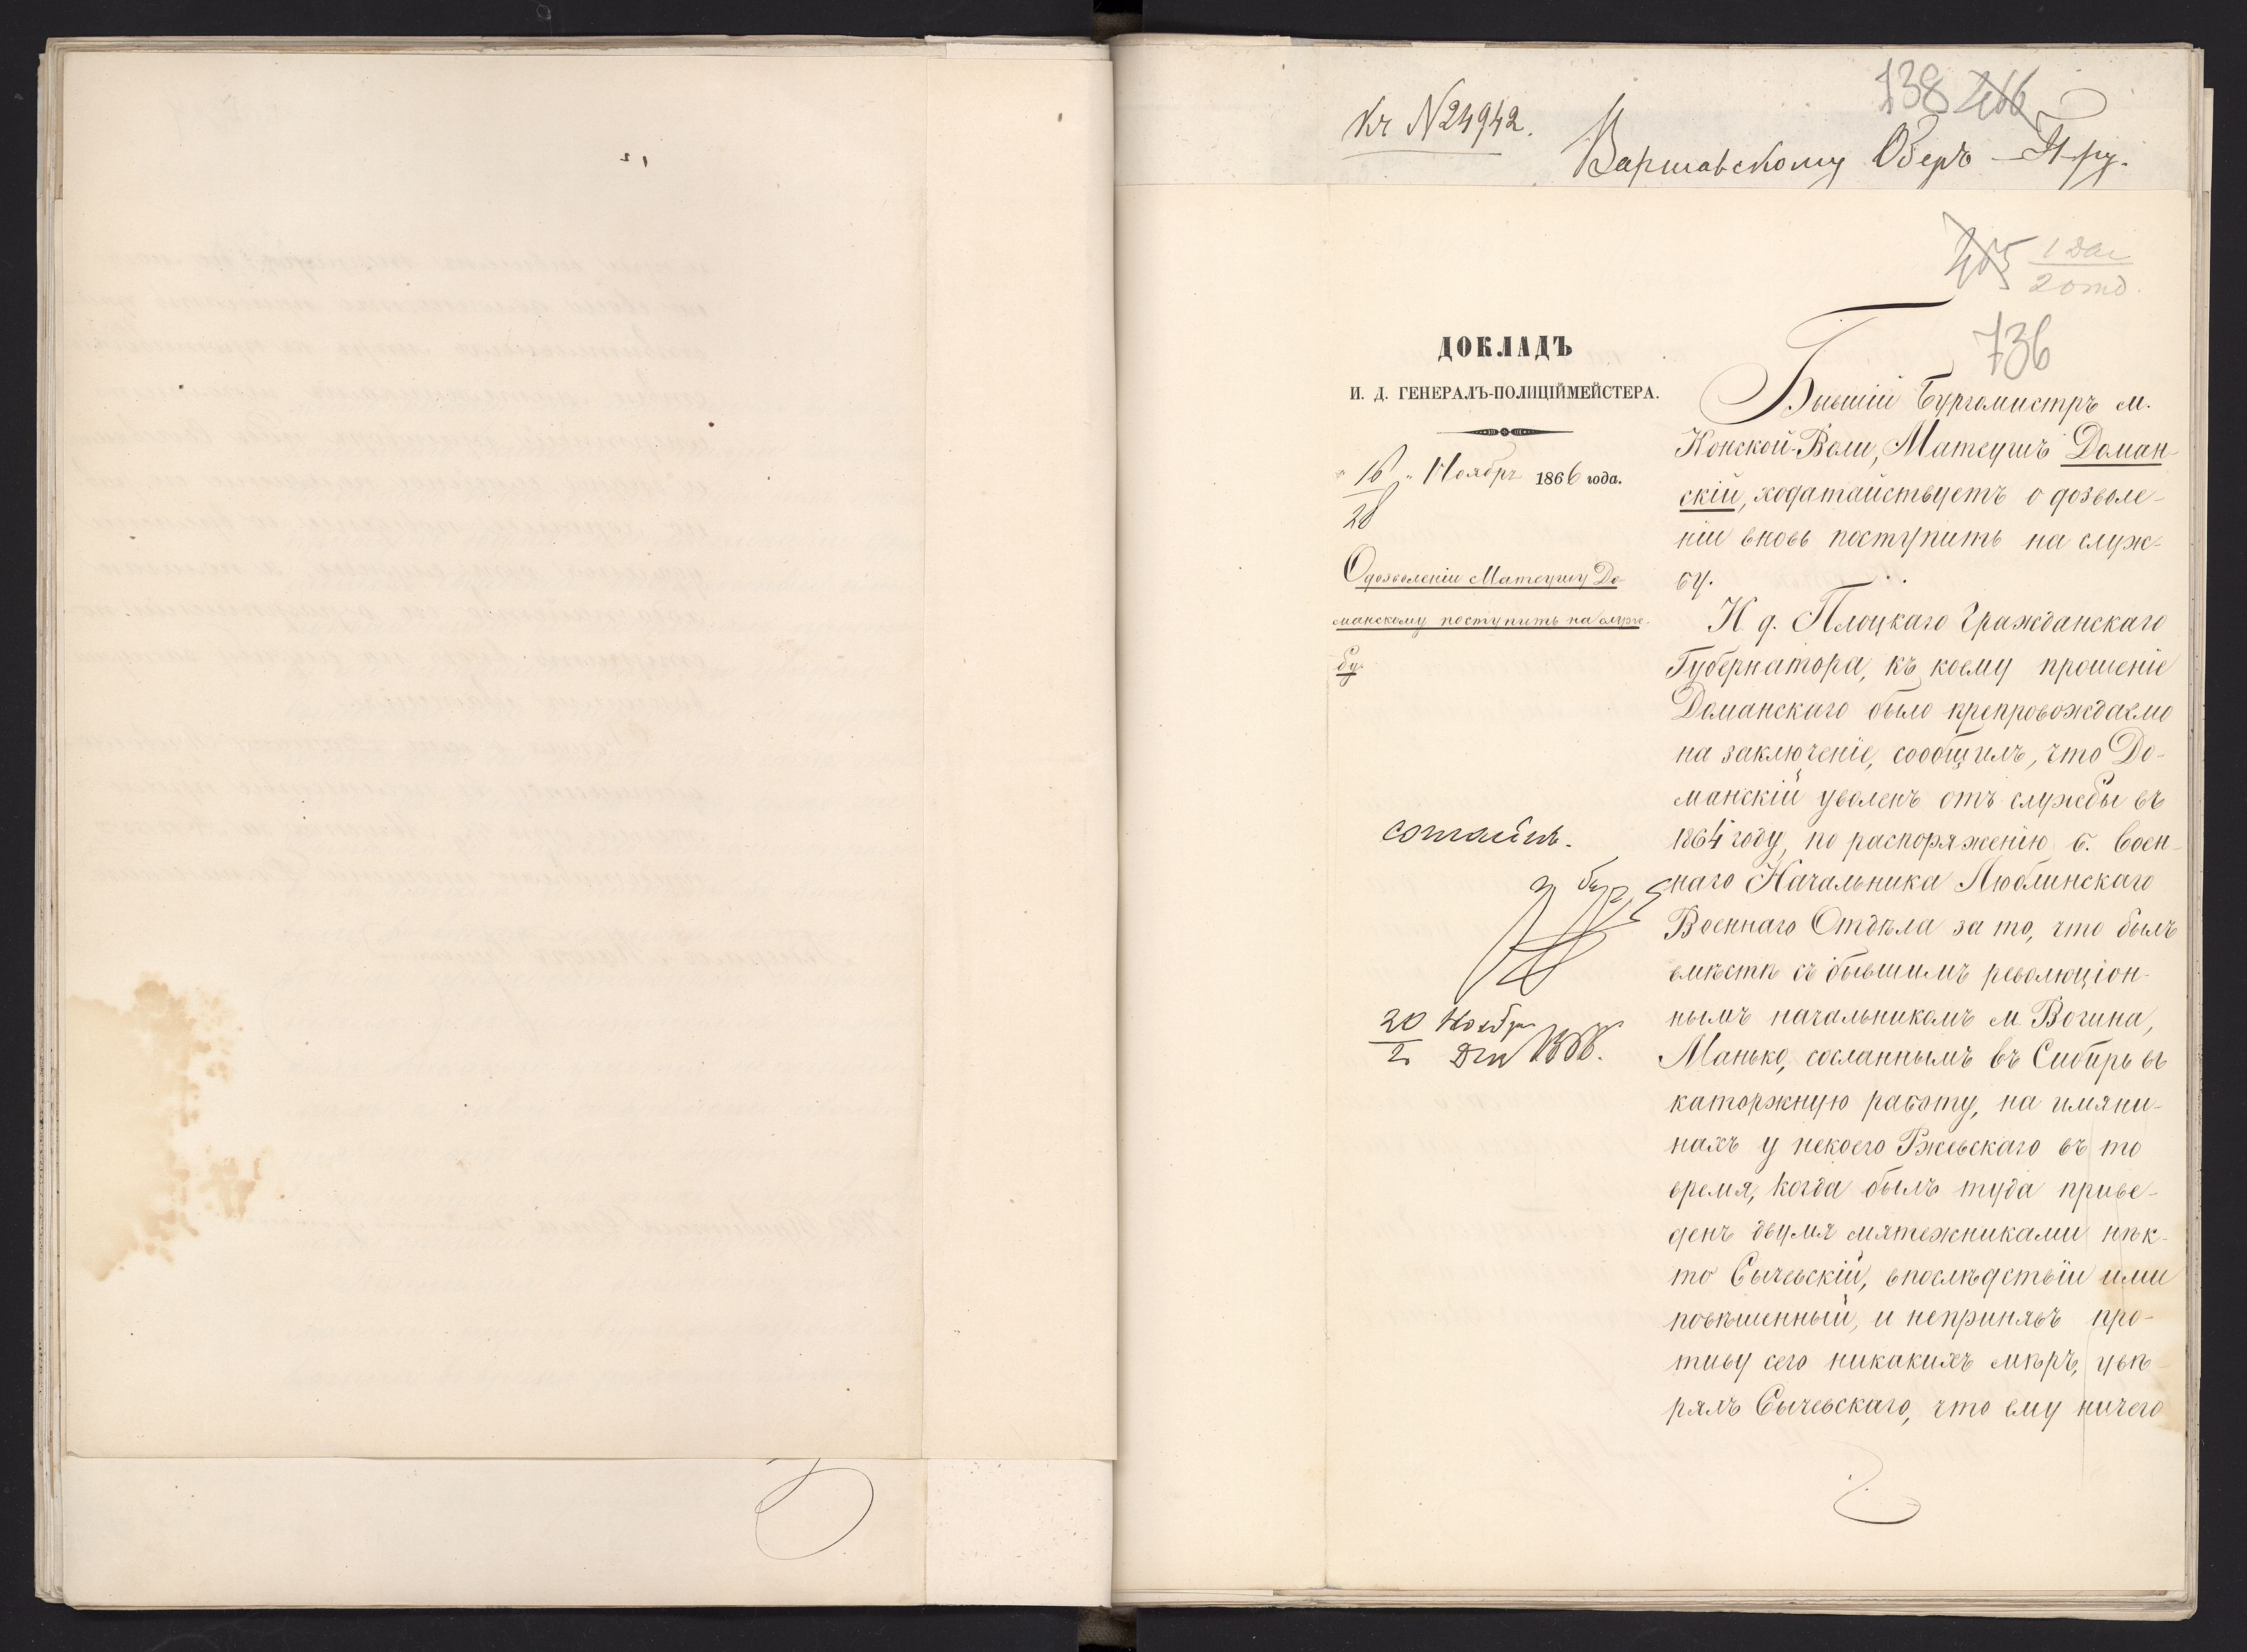 Къ N 24942.
738 466
Варшавскому Оберъ-
465 1 Дѣл
2 отд.
736
ДОКЛАДЪ
И. Д. ГЕНЕРАЛЪ-ПОЛИЦІЙМЕЙСТЕРА.
" 16 " Ноября 1866 года.
28
О дозволеніи Матеушу До-
манскому поступить на служ-
бу.
20 Ноября
2 Дек 1866.
Бывшій Бургомистръ м.
Конской-Воли, Матеушъ Доман-
скій, ходатайствуетъ о дозволе-
ніи вновь поступить на служ-
бу.
И. д. Плоцкаго Гражданскаго
Губернатора, къ коему прошеніе
Доманскаго было препровождаемо
на заключеніе, сообщилъ, что До-
манскій уволенъ отъ службы въ
1864 году, по распоряженію б. Воен-
наго Начальника Люблинскаго
Военнаго Отдѣла за то, что былъ
вмѣстѣ съ бывшимъ революціон-
нымъ начальникомъ м. Вогина,
Манько, сосланнымъ въ Сибирь въ
каторжную работу, на имяни-
нахъ у некоего Ржевскаго въ то
время, когда былъ туда приве-
денъ двумя мятежниками нѣк-
то Сычевскій, впослѣдствіи ими
повѣшенный, и непринявъ про-
тиву сего никакихъ мѣръ, увѣ-
рялъ Сычевскаго, что ему ничего